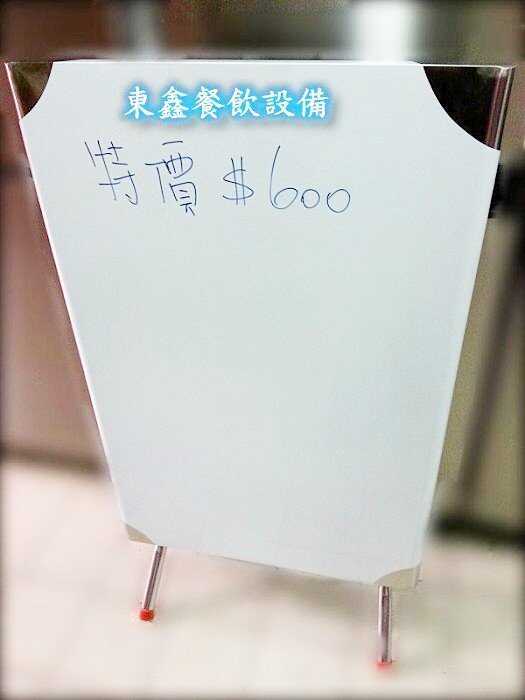 東鑫餐飲設備
特價 $600